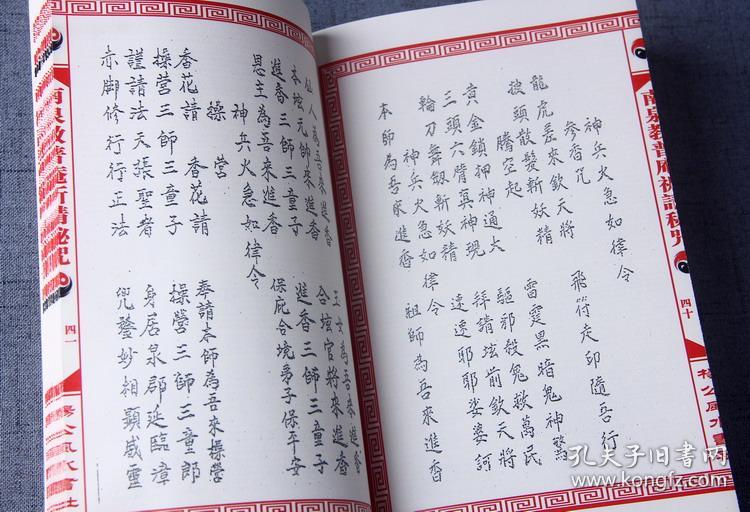 南泉教普庵祈請秘咒
四十
楊公風水書
神兵火急如律令
參香咒
飛符走印隨吾行
龍虎差來欽天將
雷霆黑暗鬼神驚
披頭散髮斬妖精
驅邪殺鬼救萬民
騰空起
黃金鎖押神通大
拜請坛前欽天將
三頭六臂真神現
速速耶耶娑婆訶
輪刀舞劍斬妖精
神兵火急如律令
本師為吾來進香
祖師為吾來進香
仙人為吾來進香
玉女為吾來進香
本坛元帥來進香
合坛官將來進香
進香三師三童子
進香三師三童子
恩主為吾來進香
保庇合境弟子保平安
神兵火急如律令
操營
香花請 香花請
奉請本師為吾來操營
操營三師三童子
操營三師三童郎
謹請法天張聖者
身居泉郡延臨漳
赤脚修行行正法
兜鍪妙相顯威靈
南泉教普庵祈請秘咒
四一
楊公風水書社
孔夫子旧书网
www.kongfz.com